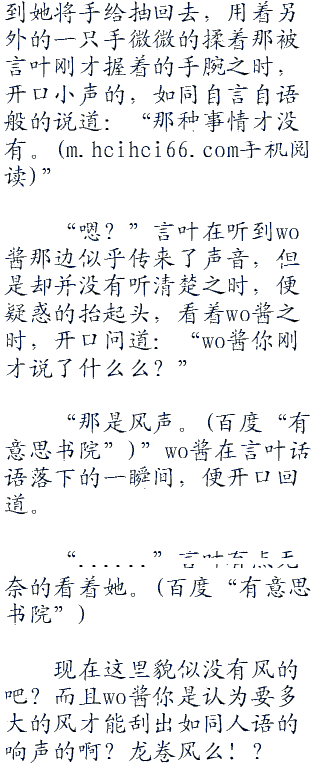 到她将手给抽回去，用着另
外的一只手微微的揉着那被
言叶刚才握着的手腕之时，
开口小声的，如同自言自语
般的说道：“那种事情才没
有。(m.hcihci66.com手机阅
读)”
“嗯？”言叶在听到wo
酱那边似乎传来了声音，但
是却并没有听清楚之时，便
疑惑的抬起头，看着wo酱之
时，开口问道：“wo酱你刚
才说了什么么？”
“那是风声。(百度“有
意思书院”)”wo酱在言叶话
语落下的一瞬间，便开口回
道。
“......”言叶有点无
奈的看着她。(百度“有意思
书院”)
现在这里貌似没有风的
吧？而且wo酱你是认为要多
大的风才能刮出如同人语的
响声的啊？龙卷风么！？